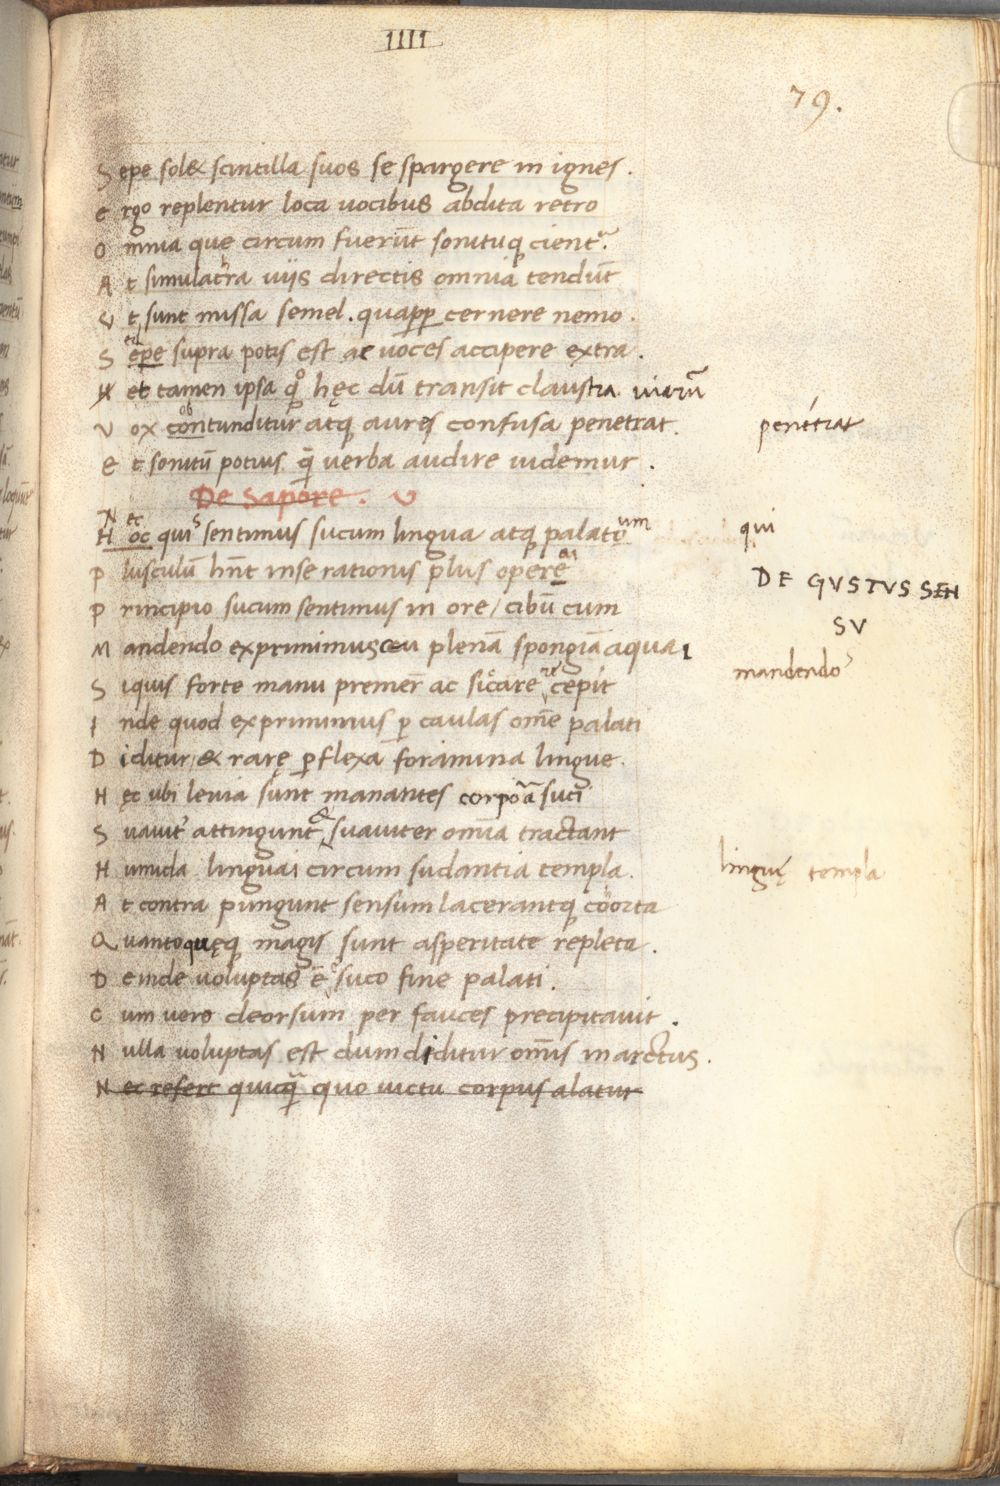 IIII
79.
Sepe solet scintilla suos se spargere in ignes.
ergo replentur loca uocibus abdita retro
Omnia quę circum fuerūt sonituq cientᵃ.
At simulacra uiis directis omnia tendūt
Vt sunt missa semel. quapp cernere nemo.
Sepe supra potis est ac uoces accipere extra.
et tamen ipsa qͦ hęc dū transit claustra uiarū
Vox contunditur atq aures confusa penetrat. penetrat
Et sonitū potius q̄ uerba audire uidemur.
De Sapore.
Hoc quiˢ sentimus sucum lingua atq palatoᵘᵐ qui
Plusculū hn̄t inse rationis plus opere
DE GVSTVS SEN
SV
Principio sucum sentimus in ore / cibū cum
Mandendo exprimimus ceu plenā spongiā aquai
mandendo
Siquis forte manu premer̄ ac siccare cepit
Inde quod exprimimus p caulas om̄e palati
Diditur / & rarę pflexa foramina lingue.
Hęc ubi leuia sunt manantes corpora suci
Suauit̄ attingunt & suauiter om̄ia tractant
Humida linguai circum sudantia templa. linguę templa
At contra pungunt sensum lacerantq coorta
Quantoquęq magis sunt asperitate repleta.
Deinde uoluptas ē suco fine palati.
Cum uero deorsum per fauces precipitauit.
Nulla uoluptas est dum diditur om̄is in arctus.
Nec refert quicq̄ quo uictu corpus alatur